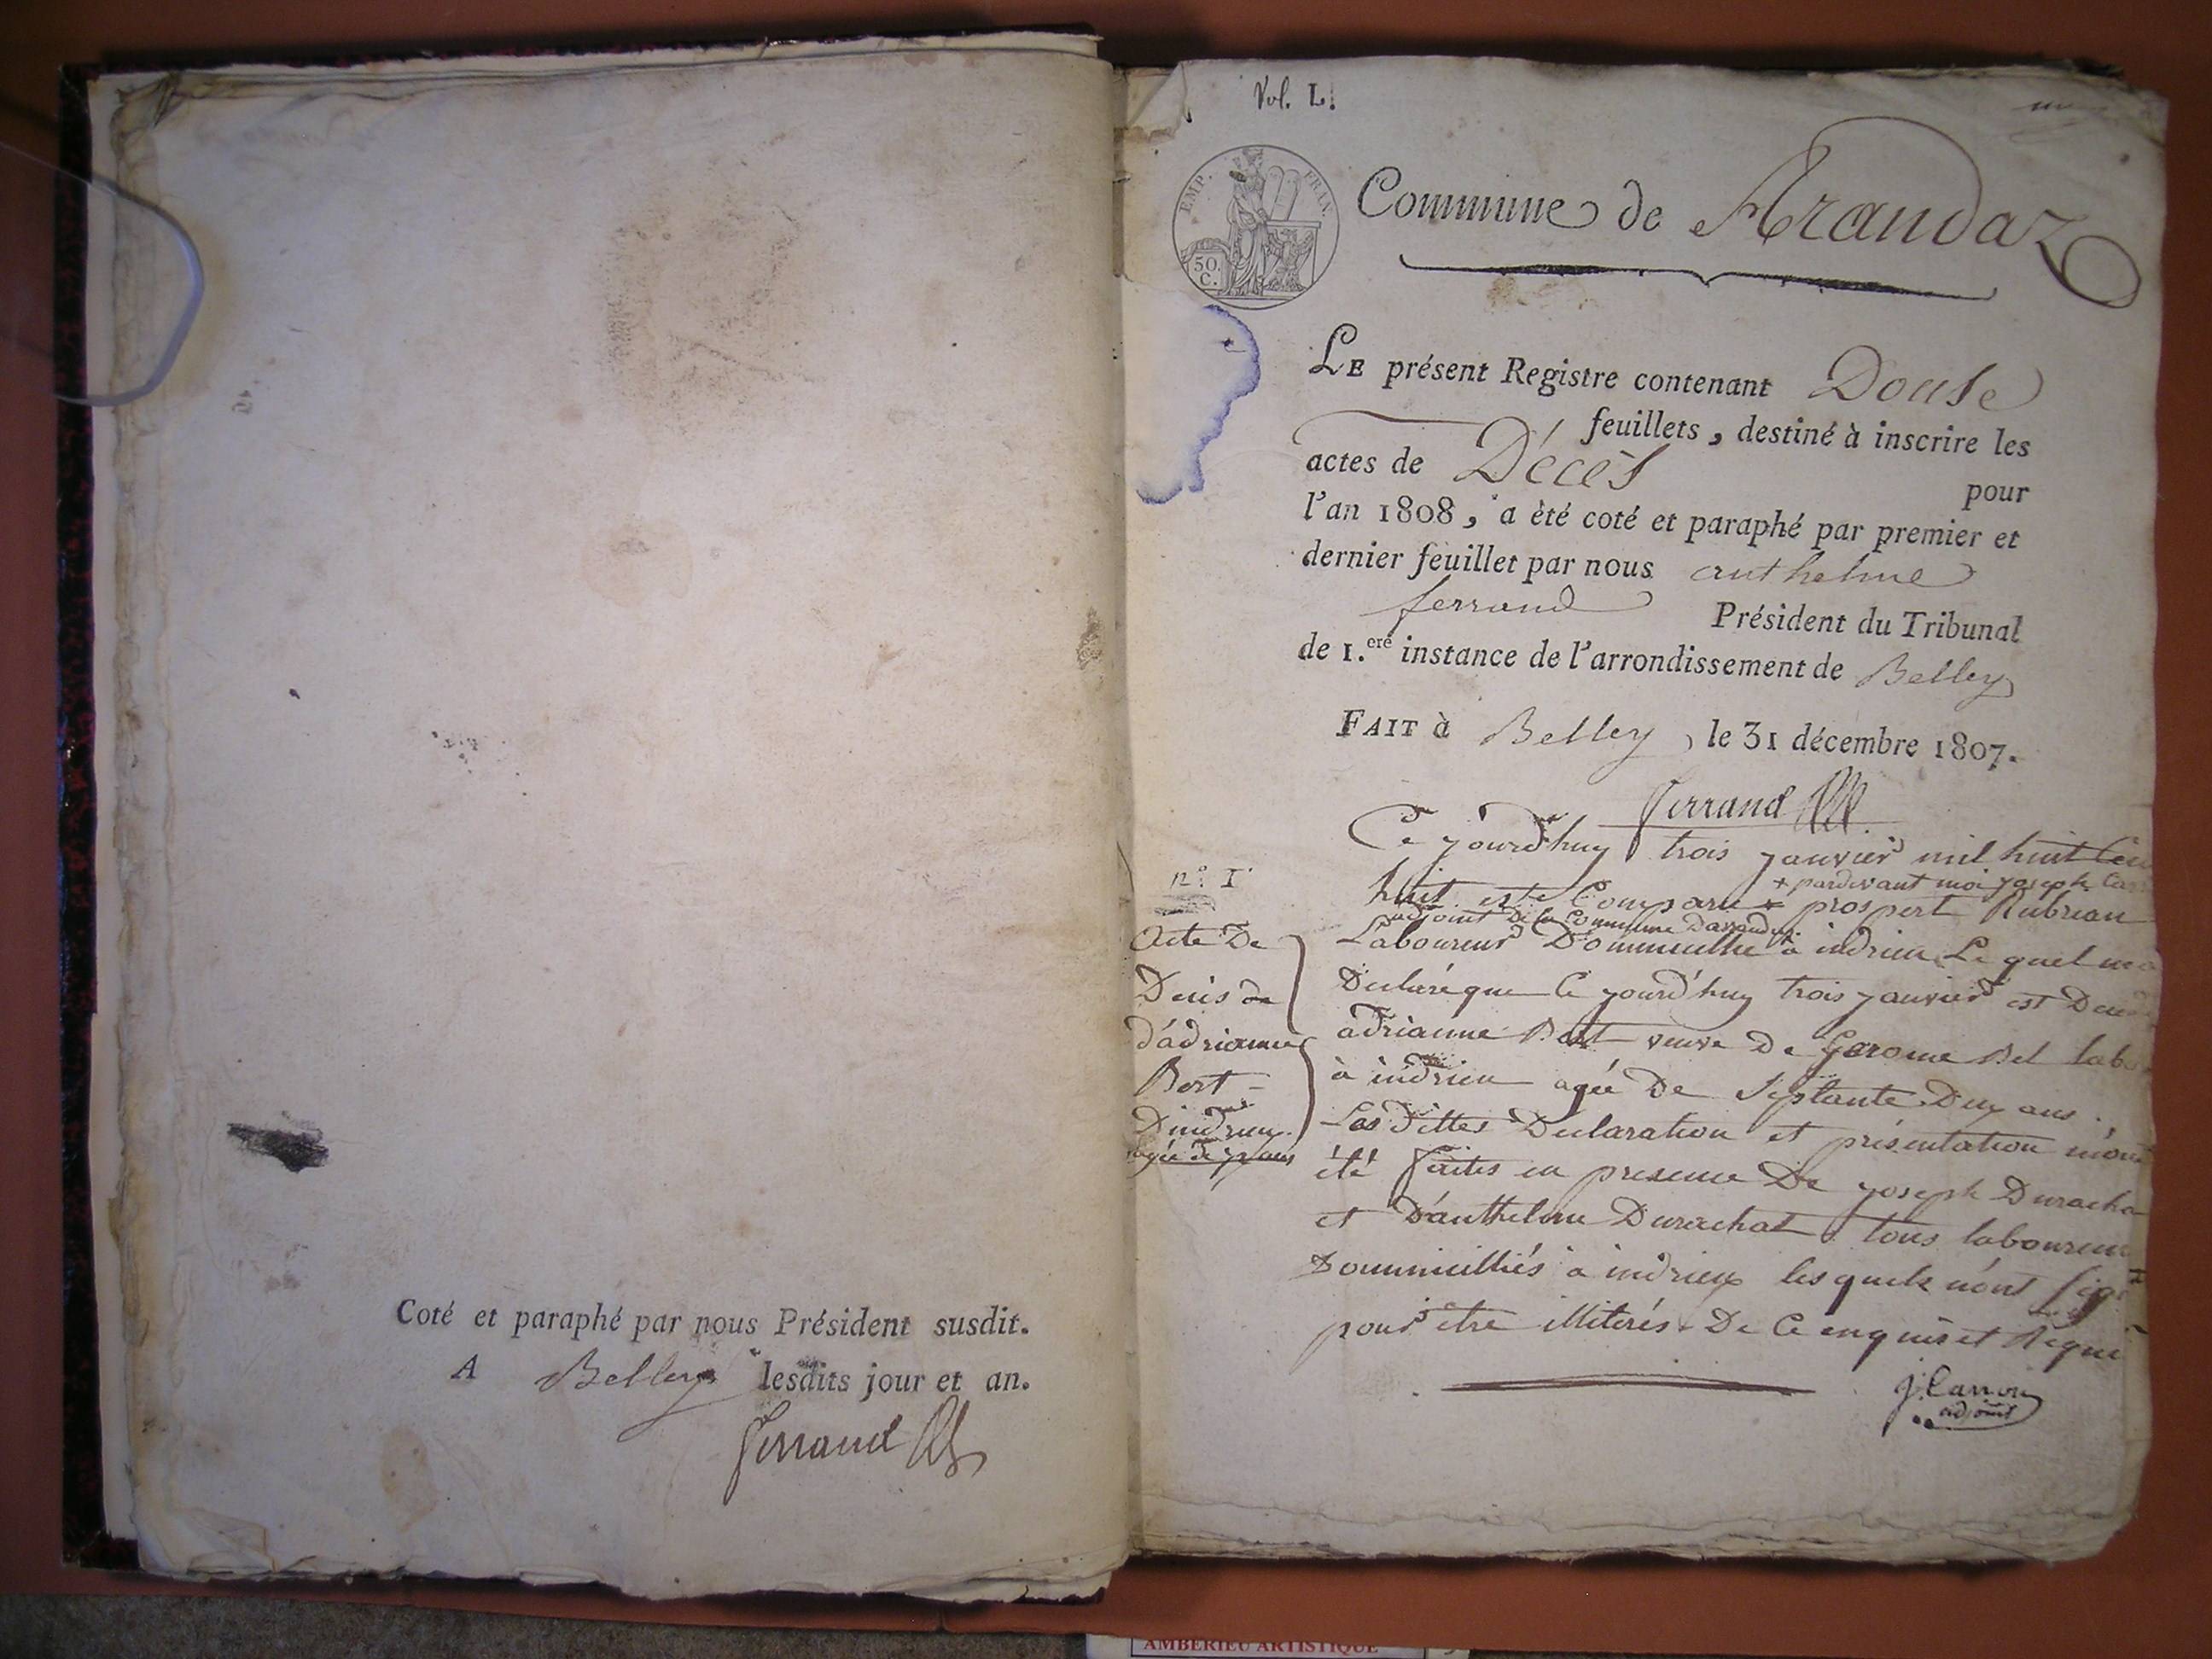 Coté et paraphé par nous Président susdit.
A Belley lesdits jour et an.
Ferrand
Vol. L.
EMP. FRAN.
50.
C.
Commune de Arandaz
LE présent Registre contenant Douse
feuillets, destiné à inscrire les
actes de Décès pour
l'an 1808, a été coté et paraphé par premier et
dernier feuillet par nous anthelme
ferrand Président du Tribunal
de 1.ere instance de l'arrondissement de Belley
FAIT à Belley, le 31 décembre 1807.
Ferrand
n.° 1
Acte De
Decis de
d'adrianne
Bort
Dindrieu
agée de 72 ans
Ce yourd'huy trois janvier mil huit Cen
+ pardevant moi joseph Car
huit este Comparu + prospert Rubeau
adjoint De la Commune Darandas
Laboureur Dommicilhe à indrieu Le quel ma
Déclaré que Ce yourd'huy trois janvier est Deced
adrianne Bort veuve De Gerome Bel lab
à indrieu agée De Septante Deux ans.
Les dittes Déclaration et présentation mont
été faites en presence De joseph Duracha
et D'anthelme Durachat tous laboureur
Dommicilliés à indrieux lesquels n'ont sig
pour être illiterés De Ce enquis et Requi
J. Carron
adjoint
AMBERIEU ARTISTIQUE